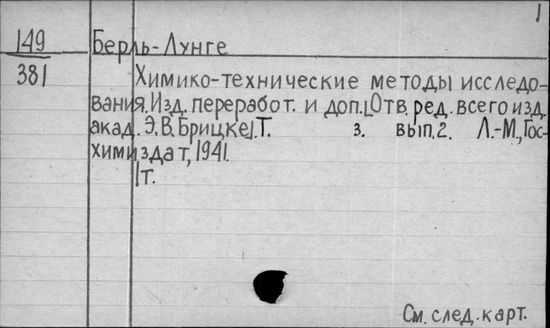 1
149 Берль-Лунге
381 Химико-технические методы исследо-
вания. Изд. переработ. и доп. [Отв. ред. всего изд.
акад. Э.В. Брицке]. Т. 3. вып. 2. Л.-М., Гос-
химиздат, 1941.
1т.
См. след. карт.